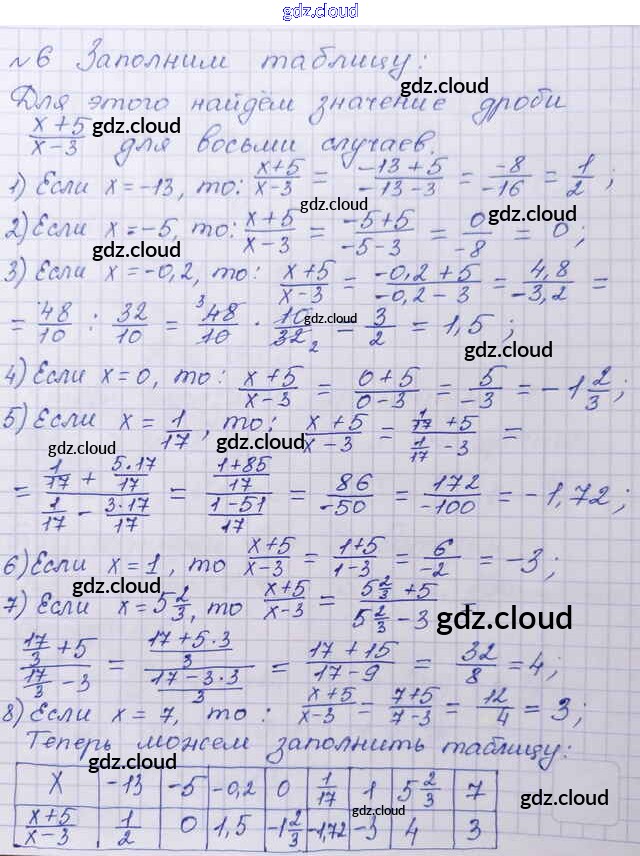 gdz.cloud
№6 Заполним таблицу:
gdz.cloud
Для этого найдём значение дроби
(x+5)/(x-3) для восьми случаев.
gdz.cloud gdz.cloud
1) Если x=-13, то: (x+5)/(x-3) = (-13+5)/(-13-3) = (-8)/(-16) = 1/2;
gdz.cloud
2) Если x=-5, то: (x+5)/(x-3) = (-5+5)/(-5-3) = 0/(-8) = 0;
gdz.cloud
3) Если x=-0,2, то: (x+5)/(x-3) = (-0,2+5)/(-0,2-3) = 4,8/(-3,2) =
gdz.cloud
= 48/10 : 32/10 = 3 48/10 · 10/32 2 = 3/2 = 1,5;
gdz.cloud gdz.cloud
4) Если x=0, то: (x+5)/(x-3) = (0+5)/(0-3) = 5/(-3) = -1 2/3;
5) Если x=1/17, то: (x+5)/(x-3) = (1/17+5)/(1/17-3) =
gdz.cloud gdz.cloud
= (1/17 + 5·17/17)/(1/17 - 3·17/17) = ((1+85)/17)/((1-51)/17) = 86/(-50) = 172/(-100) = -1,72;
6) Если x=1, то (x+5)/(x-3) = (1+5)/(1-3) = 6/(-2) = -3;
gdz.cloud
7) Если x=5 2/3, то (x+5)/(x-3) = (5 2/3+5)/(5 2/3-3) =
gdz.cloud
(17/3+5)/(17/3-3) = ((17+5·3)/3)/((17-3·3)/3) = (17+15)/(17-9) = 32/8 = 4;
8) Если x=7, то: (x+5)/(x-3) = (7+5)/(7-3) = 12/4 = 3;
Теперь можем заполнить таблицу:
gdz.cloud
x -13 -5 -0,2 0 1/17 1 5 2/3 7
gdz.cloud gdz.cloud
(x+5)/(x-3) 1/2 0 1,5 -1 2/3 -1,72 -3 4 3
gdz.cloud